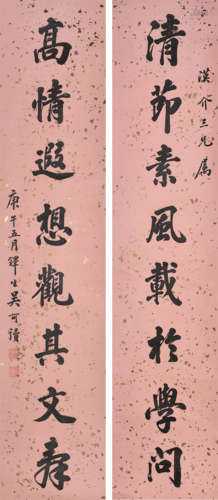 漢介三兄屬
清節素風載於學問
高情遐想觀其文
庚午五月鐸生吳可讀